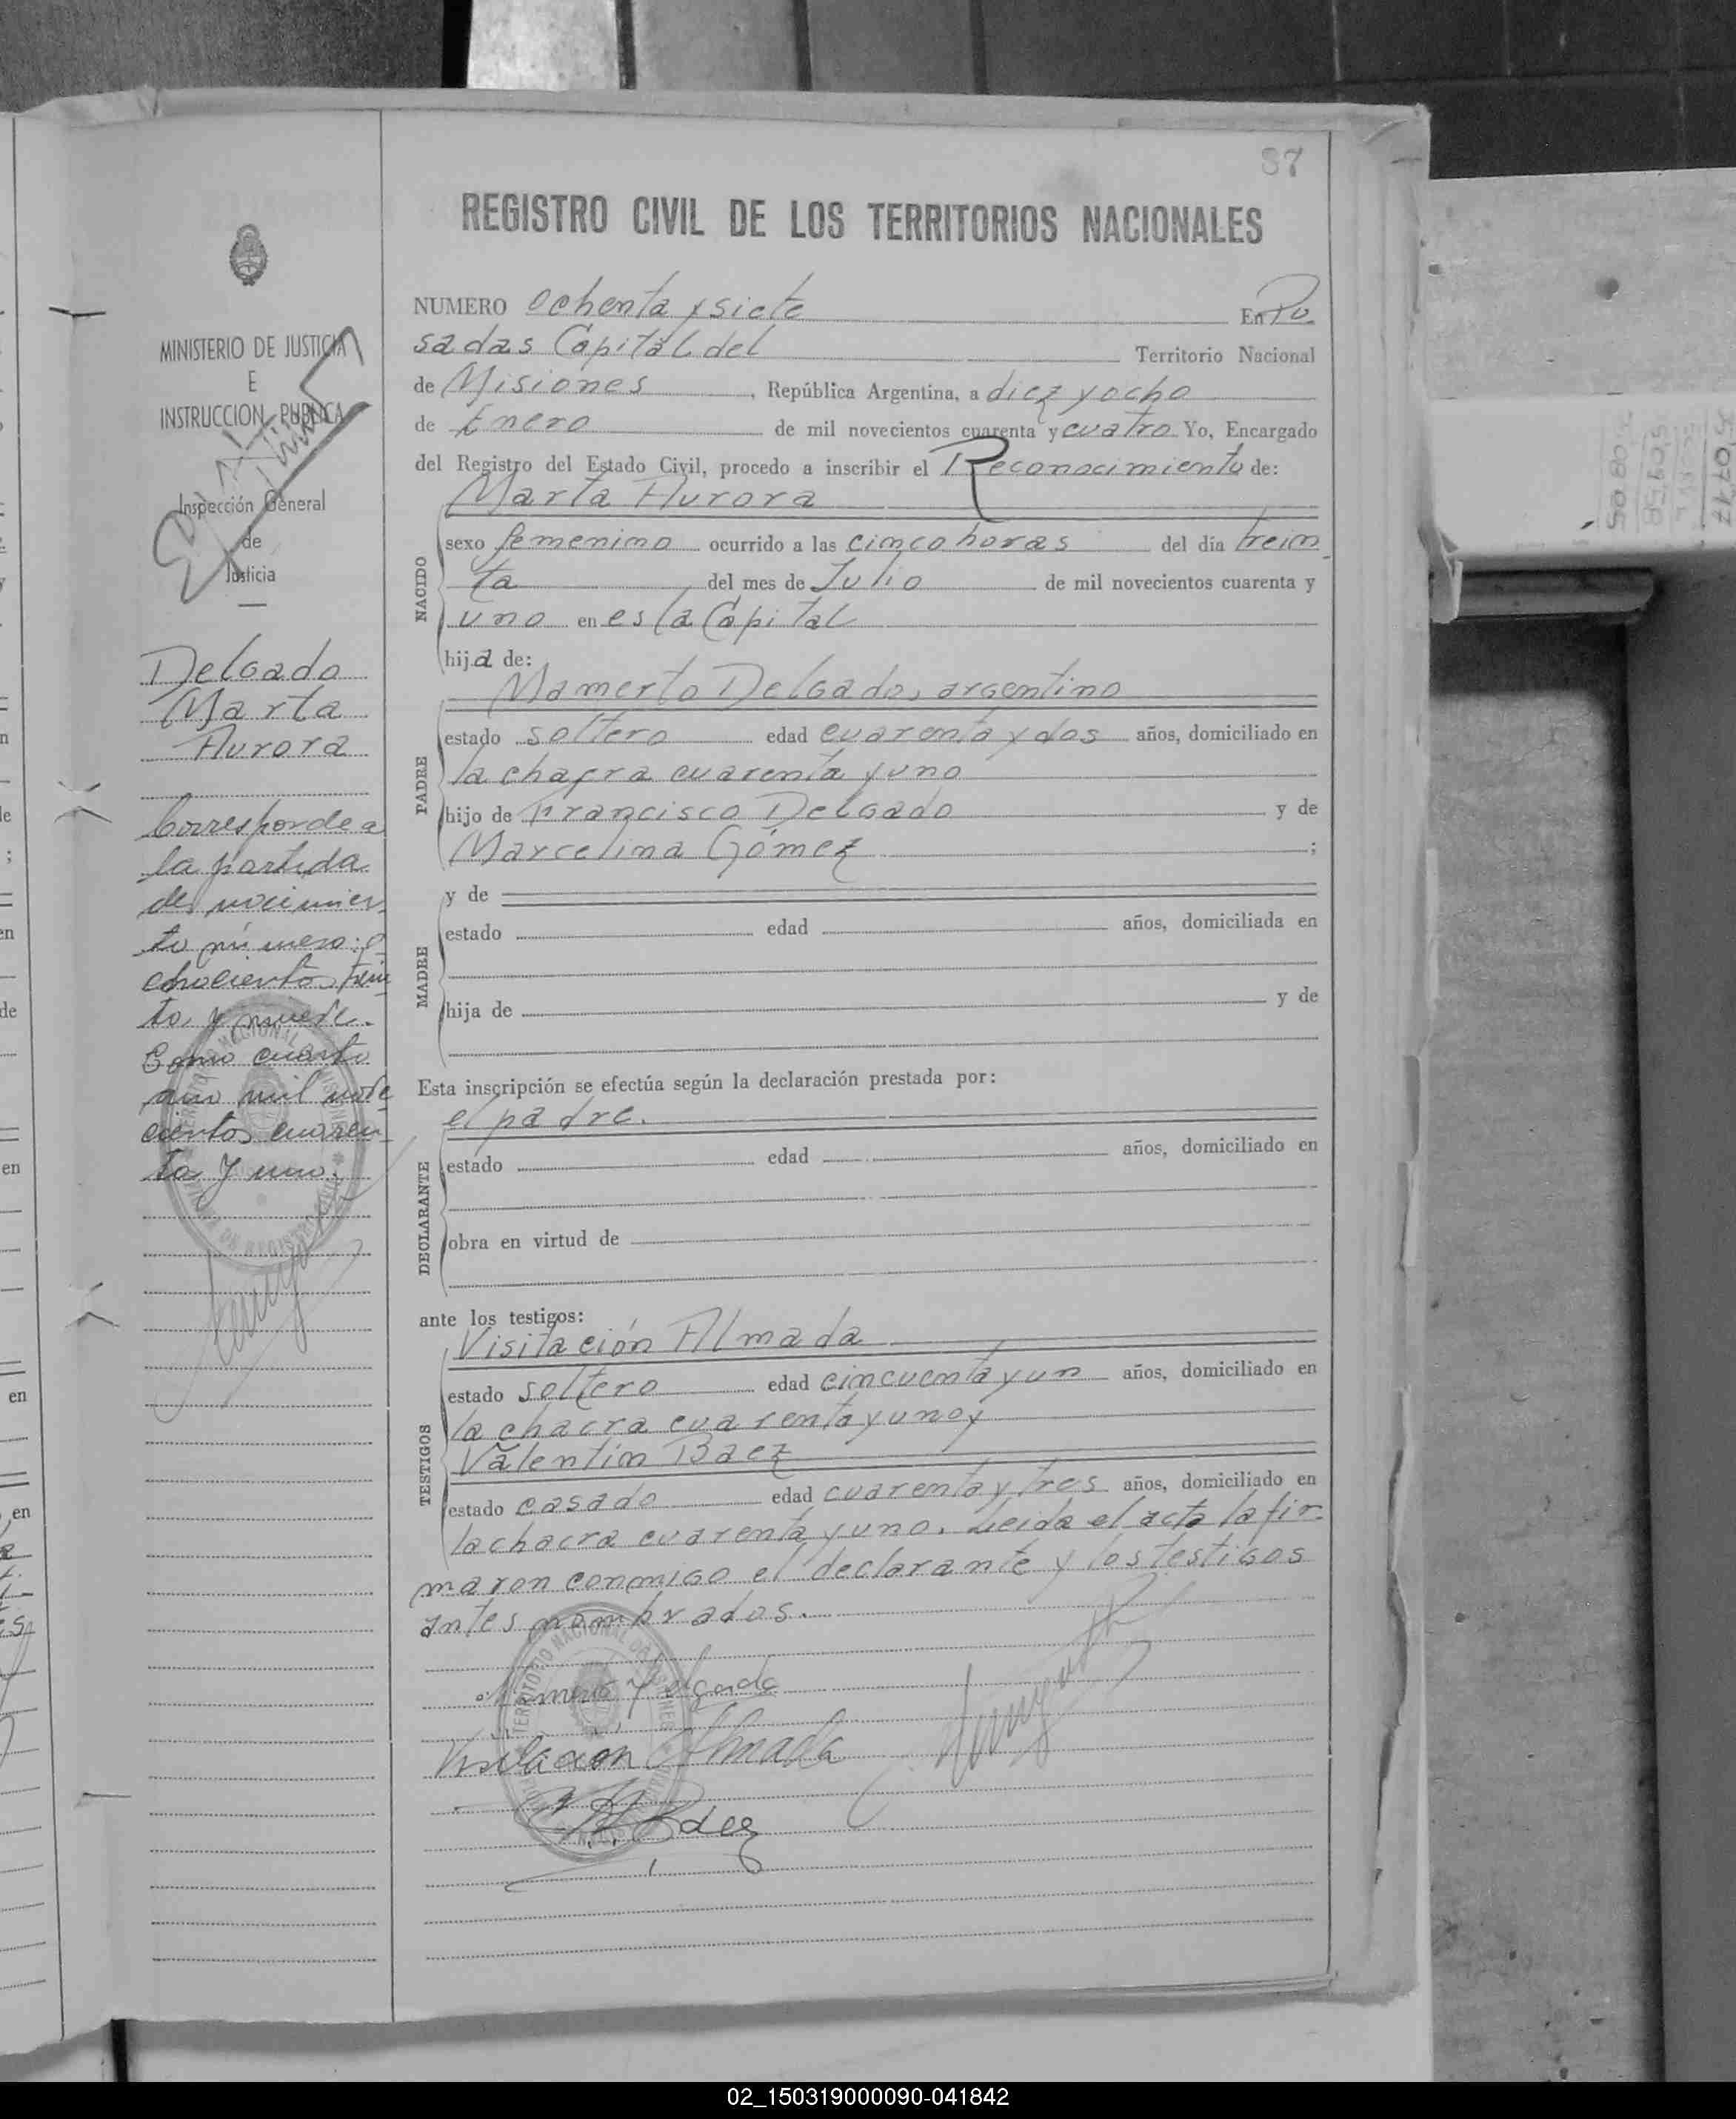 87
REGISTRO CIVIL DE LOS TERRITORIOS NACIONALES
NUMERO ochenta y siete En Po
sadas Capital del Territorio Nacional
de Misiones, República Argentina, a diez y ocho
de Enero de mil novecientos cuarenta y cuatro Yo, Encargado
del Registro del Estado Civil, procedo a inscribir el Reconocimiento de:
Marta Aurora
NACIDO
sexo femenino ocurrido a las cinco horas del día trein
ta del mes de Julio de mil novecientos cuarenta y
uno en esta Capital
hija de:
Mamerto Delgado, argentino
PADRE
estado soltero edad cuarenta y dos años, domiciliado en
la chacra cuarenta y uno
hijo de Francisco Delgado y de
Marcelina Gómez ;
MADRE
y de
estado edad años, domiciliada en
hija de y de
Esta inscripción se efectúa según la declaración prestada por:
el padre.
DECLARANTE
estado edad años, domiciliado en
obra en virtud de
ante los testigos:
Visitación Almada
TESTIGOS
estado soltero edad cincuenta y un años, domiciliado en
la chacra cuarenta y uno y
Valentín Baez
estado casado edad cuarenta y tres años, domiciliado en
la chacra cuarenta y uno. Leida el acta la fir-
maron conmigo el declarante y los testigos
antes nombrados.
Mamerto Delgado
Visitación Almada
Baez
MINISTERIO DE JUSTICIA
E
INSTRUCCION PUBLICA
Inspección General
de
Justicia
Delgado
Marta
Aurora
Corresponde a
la partida
de nacimien-
to número: o
chocientos trein
ta y nueve.
Tomo cuarto
año mil nove
cientos cuaren-
ta y uno.
02_150319000090-041842